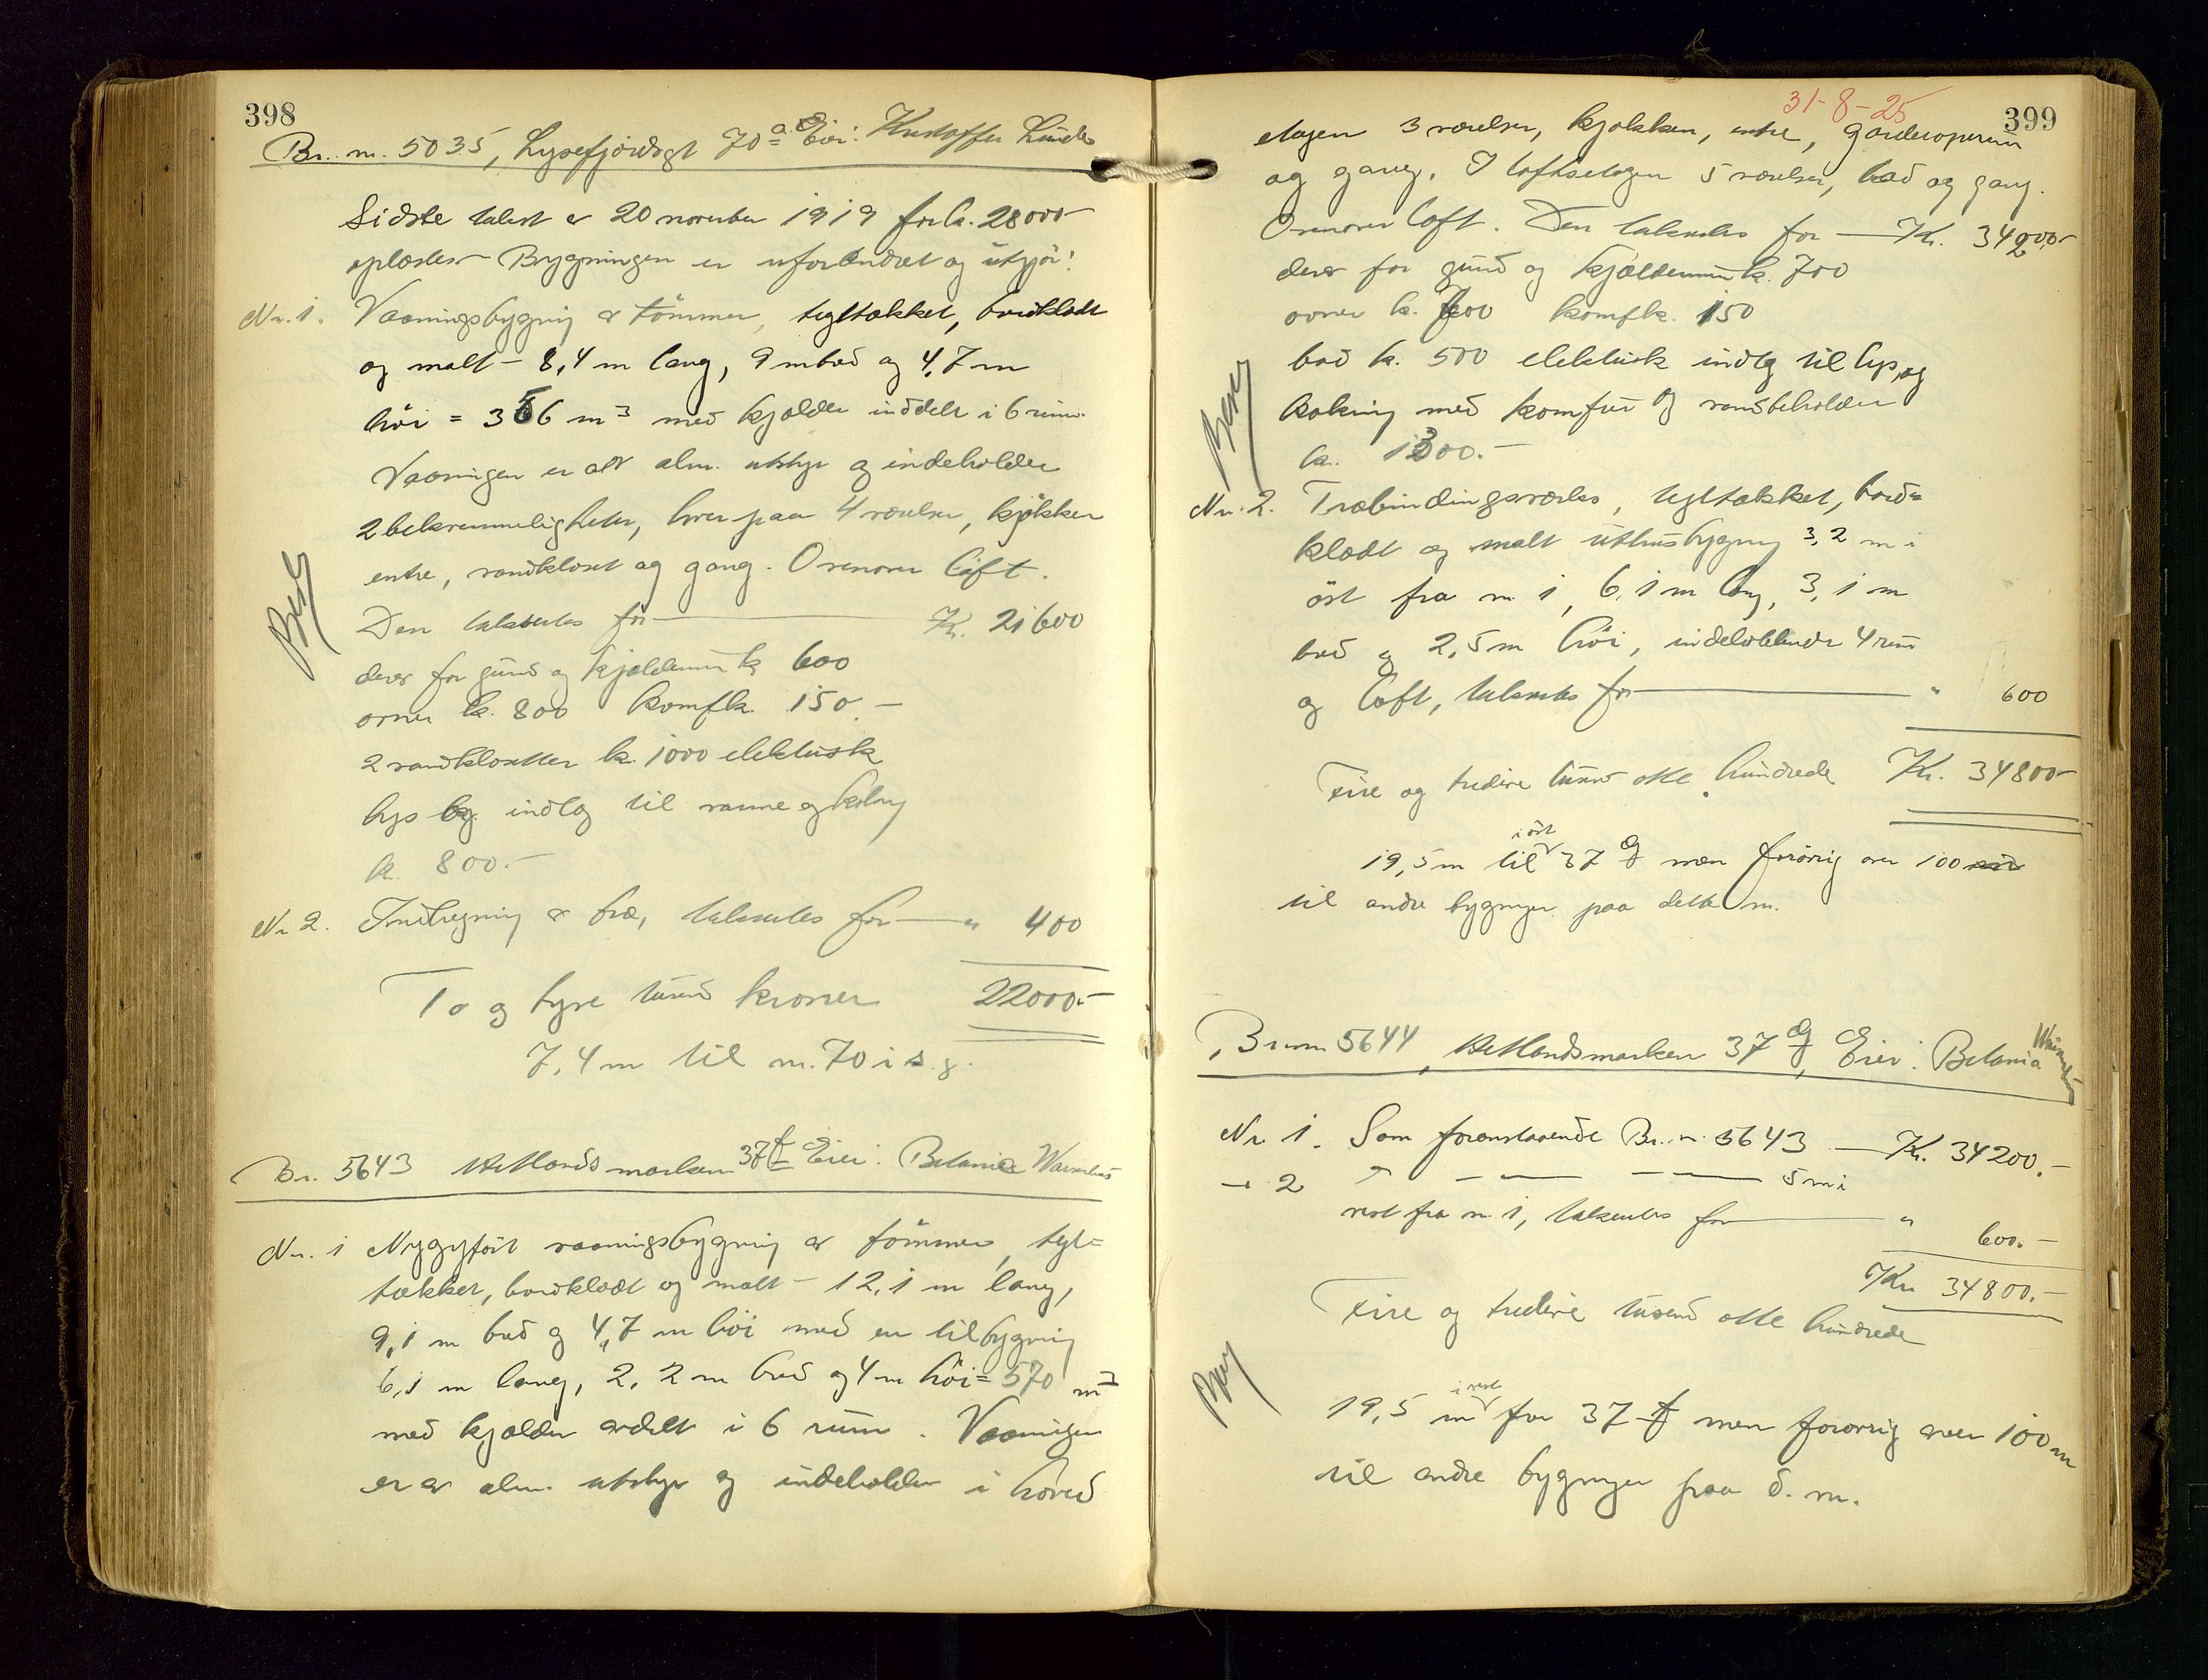 398
Br. nr. 5035, Lysefjordsgt 70a Eier: Kristoffer Linde
Sidste takst er 20 november 1919 for k. 28000-
oplæstes - Bygningen er uforandret og utgjör:
Nr. 1. Vaaningsbygning av tömmer, tegltækket, bordklædt
og malt - 8,4 m lang, 9 m bred og 4,7 m
höi = 356 m³ med kjælder inddelt i 6 rum.
Vaaningen er av alm. utstyr og indeholder
2 bekvemmeligheter, hver paa 4 værelser, kjökken
entre, vandkloset og gang. Ovenover loft.
Berg
Den takseres for — Kr. 21600
derav for grund og kjældermur k 600
ovner k. 800 komf k. 150.-
2 vandklosetter k. 1000 elektrisk
lys og indlæg til varme og kokning
k. 800.-
Nr 2. Indhegning av træ, takseres for — " 400
To og tyve tusend kroner 22000.-
7,4 m til nr. 70 i s.g.
Br. 5643 Hetlandsmarken 37f Eier: Betania Waisenhus
Nr. 1 Nyopfört vaaningsbygning av tömmer, tegl=
tækket, bordklædt og malt - 12,1 m lang,
9,1 m bred og 4,7 m höi med en tilbygning
6,1 m lang, 2,2 m bred og 4 m höi = 570 m³
med kjælder avdelt i 6 rum. Vaaningen
er av alm. utstyr og indeholder i hoved
31-8-25
399
etagen 3 værelser, kjökken, entre, garderoperum
og gang. I loftsetagen 5 værelser, bad og gang.
Ovenover loft. Den takseres for — Kr. 34200.-
derav for grund og kjældermur k. 700
ovner k. 700 komf k. 150
bad k. 500 elektrisk indlæg til lys, og
kokning med komfur og vandbeholder
k. 1300.-
Berg
Nr. 2. Træbindingsverks, tegltækket, bord=
klædt og malt uthusbygning 3,2 m i
öst fra nr 1, 6,1 m lang, 3,1 m
bred og 2,5 m höi, indeholdende 4 rum
og loft, takseres for — " 600
Fire og tredive tusend otte hundrede Kr. 34800-
19,5 m til i öst 37 g men forövrig over 100 m
til andre bygninger paa dette nr.
Br nr 5644, Hetlandsmarken 37 g, Eier: Betania Waisenhus
Nr 1. Som foranstaaende Br. nr. 5643 — Kr. 34200.-
— 2 " — — — 5 m i
vest fra nr. 1, takseres for — " 600.-
Kr 34800.-
Fire og tredive tusend otte hundrede
Berg
19,5 m i vest fra 37 f men forövrig over 100 m
til andre bygninger paa d. nr.